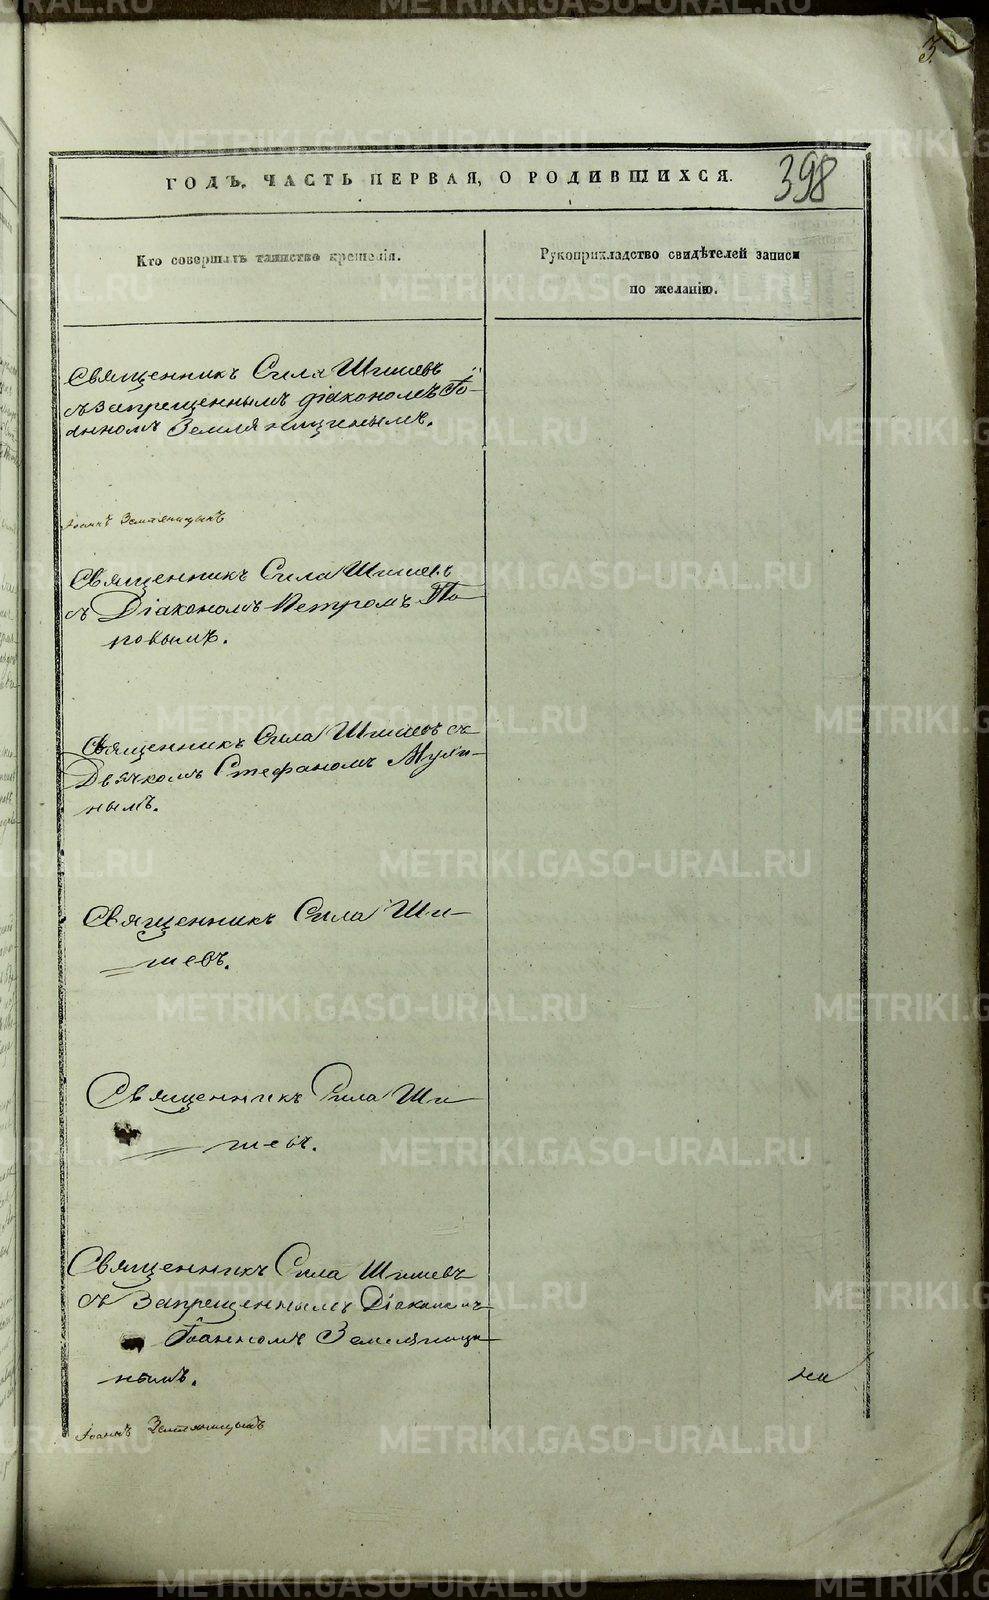 3.
ГОДЪ, ЧАСТЬ ПЕРВАЯ, О РОДИВШИХСЯ.
398
Кто совершалъ таинство крещенія.
Рукоприкладство свидѣтелей записи
по желанію.
Священникъ Сила Шишевъ
съ запрещеннымъ діакономъ Іо-
анномъ Земляницынымъ.
Іоаннъ Земляницынъ
Священникъ Сила Шишевъ
съ Діакономъ Петромъ По-
повымъ.
Священникъ Сила Шишевъ съ
Дьячкомъ Стефаномъ
нымъ.
Священникъ Сила Ши-
шевъ.
Священникъ Сила Ши-
шевъ.
Священникъ Сила Шишевъ
съ Запрещеннымъ Діакономъ
Іоанномъ Земляницы-
нымъ.
Іоаннъ Земляницынъ
METRIKI.GASO-URAL.RU